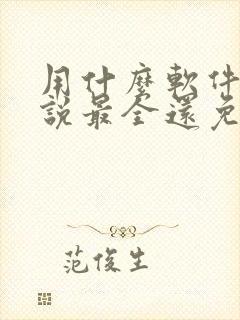 用什麼軟件
說最全還免
范俊生